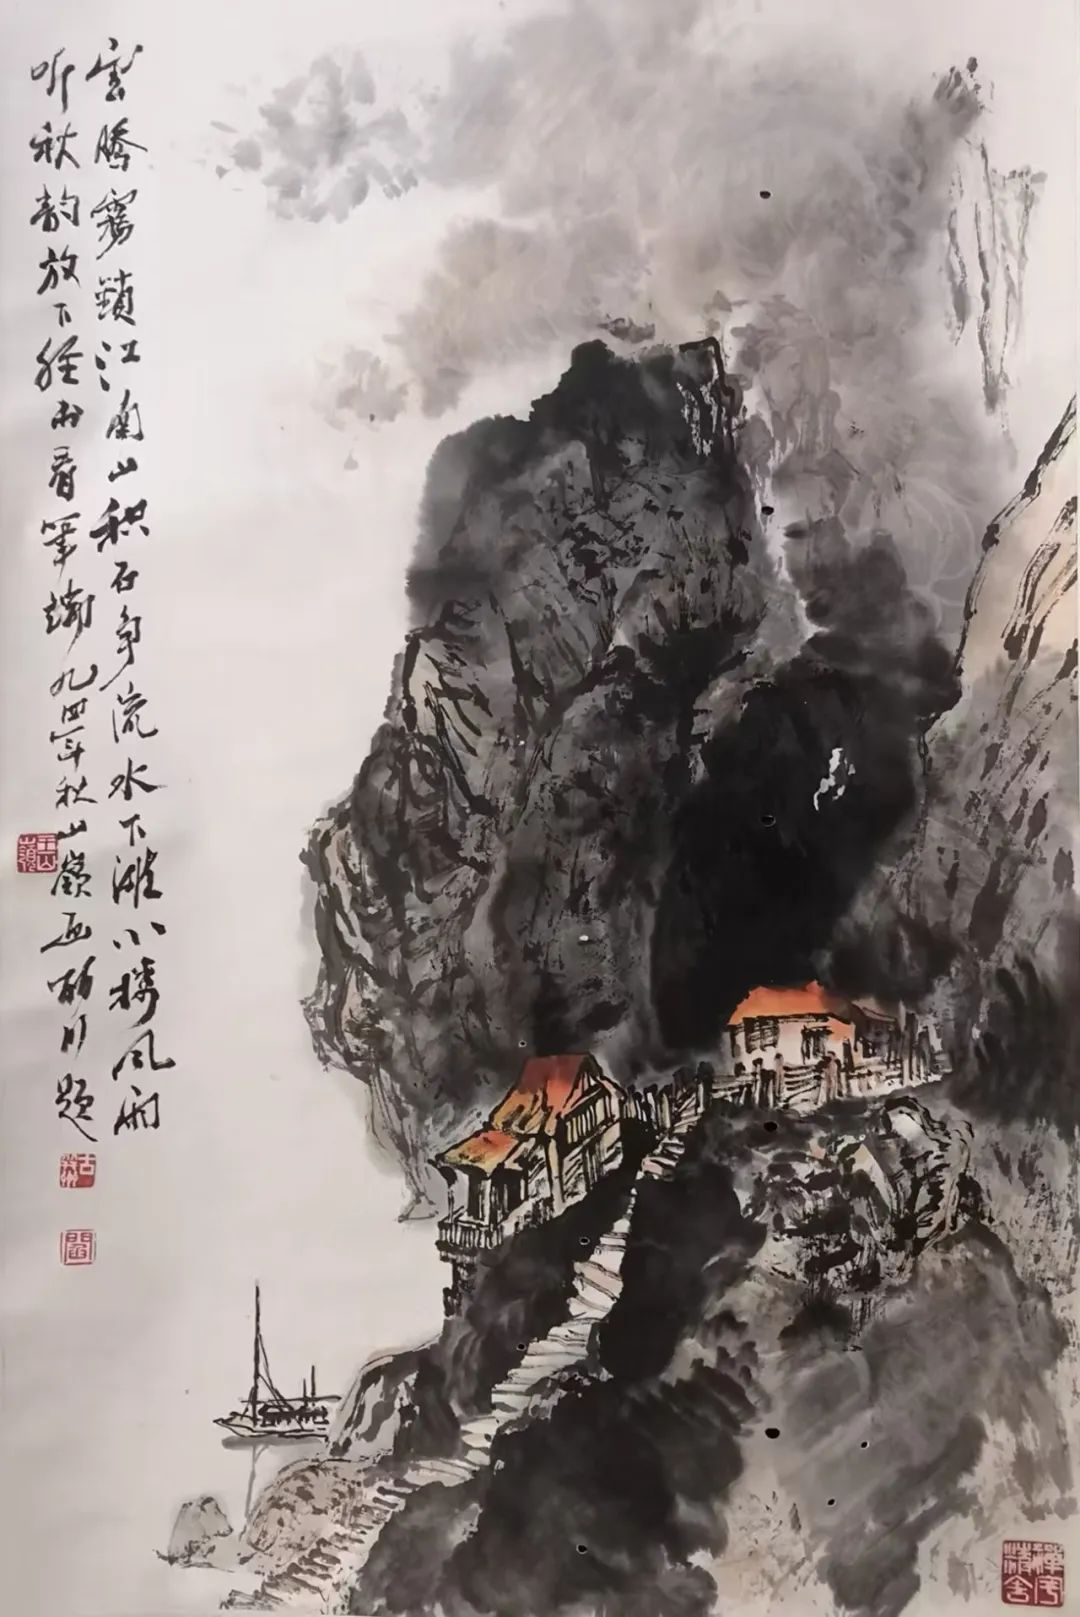 云腾雾鎖江南山积石争流水下滩小楼风雨
听秋韵放下经书看笔端九四年秋山嶺画 川題